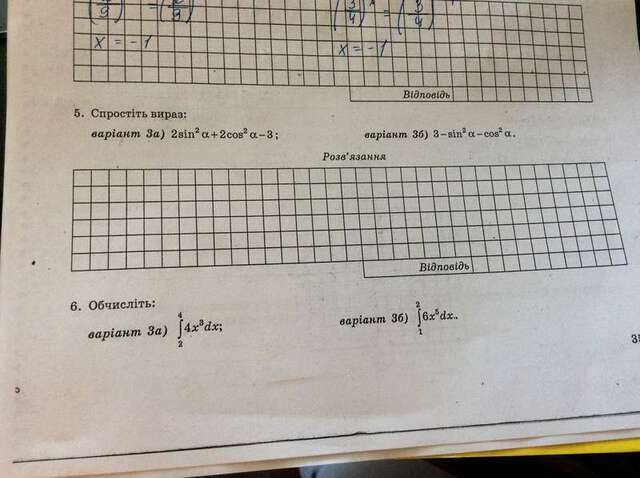 x = -1
x = -1
Відповідь
5. Спростіть вираз:
варіант 3а) 2sin²α+2cos²α-3; варіант 3б) 3-sin²α-cos²α.
Розв'язання
Відповідь
6. Обчисліть:
варіант 3а) ∫₂⁴4x³dx; варіант 3б) ∫₁²6x⁵dx..